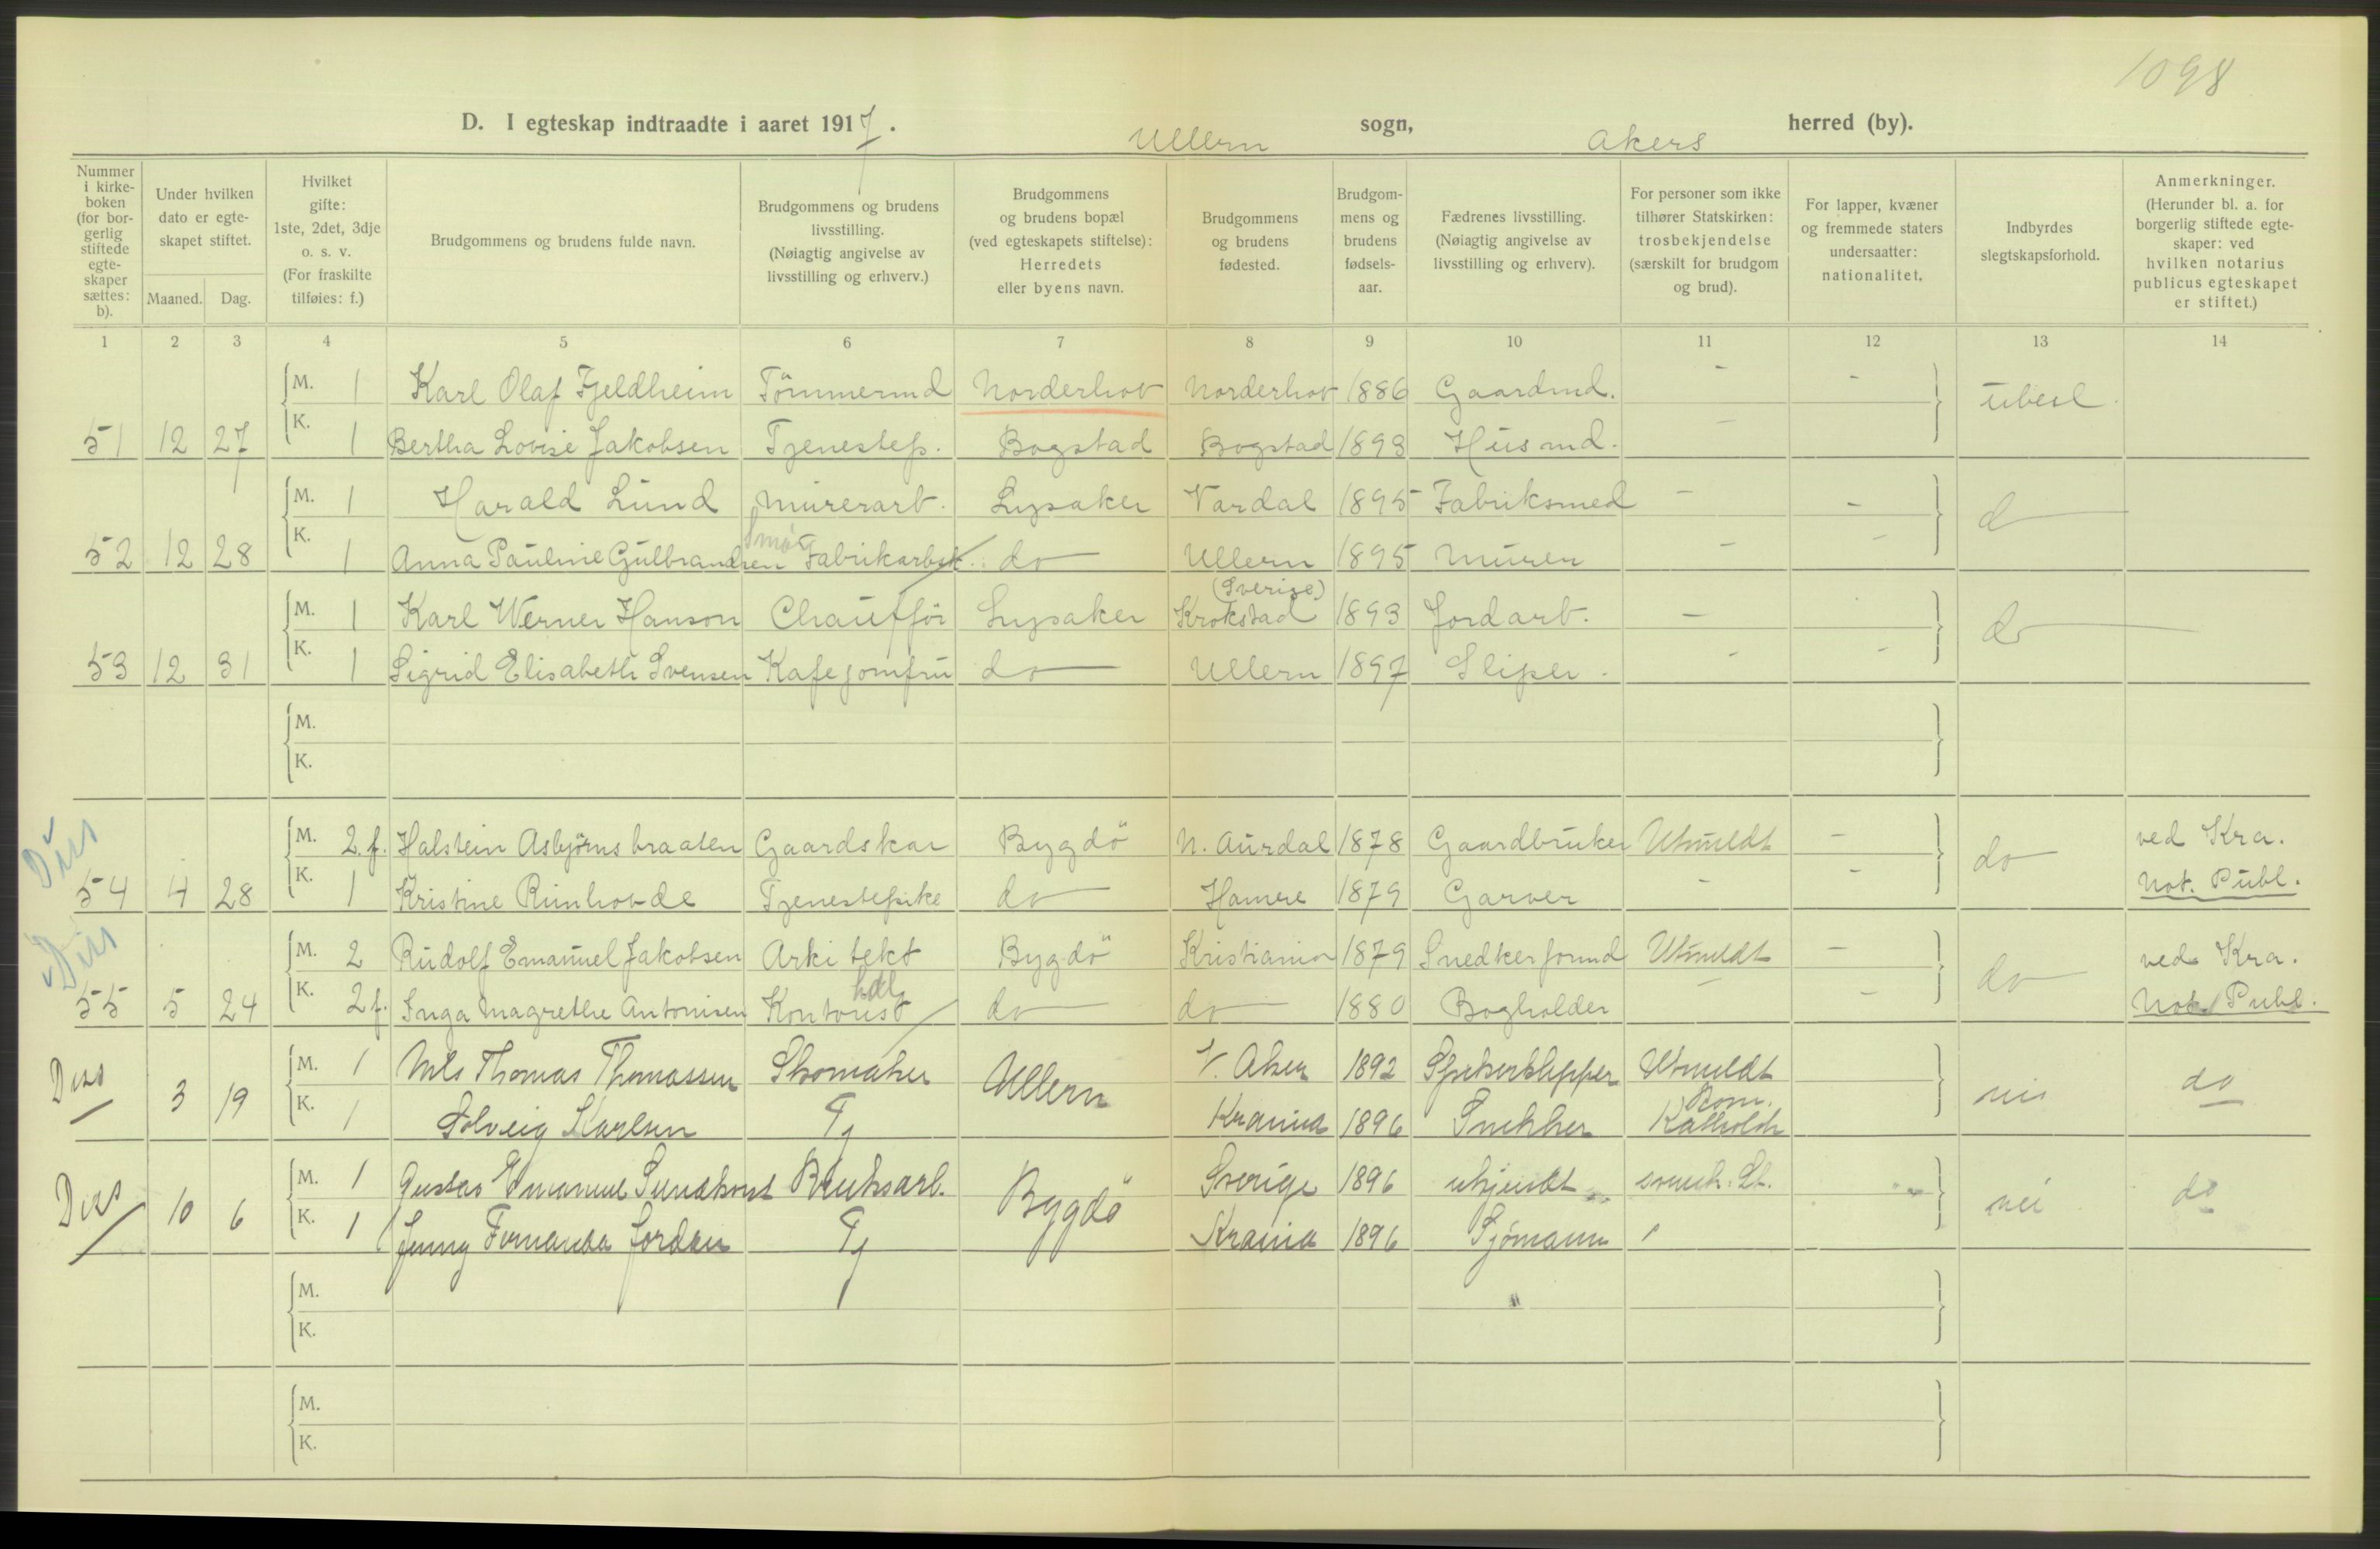 1098
D. I egteskap indtraadte i aaret 1917. Ullern sogn, Akers herred (by).
Nummer i kirke-boken (for bor-gerlig stiftede egte-skaper sættes: b).
Under hvilken dato er egte-skapet stiftet.
Maaned. Dag.
Hvilket gifte: 1ste, 2det, 3dje o. s. v. (For fraskilte tilføies: f.)
Brudgommens og brudens fulde navn.
Brudgommens og brudens livsstilling. (Nøiagtig angivelse av livsstilling og erhverv.)
Brudgommens og brudens bopæl (ved egteskapets stiftelse): Herredets eller byens navn.
Brudgommens og brudens fødested.
Brudgom-mens og brudens fødsels-aar.
Fædrenes livsstilling. (Nøiagtig angivelse av livsstilling og erhverv).
For personer som ikke tilhører Statskirken: trosbekjendelse (særskilt for brudgom og brud).
For lapper, kvæner og fremmede staters undersaatter: nationalitet.
Indbyrdes slegtskapsforhold.
Anmerkninger. (Herunder bl. a. for borgerlig stiftede egte-skaper: ved hvilken notarius publicus egteskapet er stiftet.)
1 2 3 4 5 6 7 8 9 10 11 12 13 14
M. 1 Karl Olaf Fjeldheim Tömmermd Norderhov Norderhov 1886 Gaardmd. - - ubesl.
51 12 27 K. 1 Bertha Lovise Jakobsen Tjenestep. Bogstad Bogstad 1893 Husmd. -
M. 1 Harald Lund Murerarb. Lysaker Vardal 1895 Fabriksmed - - do
Smør
52 12 28 K. 1 Anna Pauline Gulbrandsen Fabrikarbsk. do Ullern 1895 Murer - -
(Sverige)
M. 1 Karl Werner Hanson Chaufför Lysaker Krokstad 1893 Jordarb. - do
53 12 31 K. 1 Sigrid Elisabeth Svensen Kafejomfru do Ullern 1897 Sliper - -
M.
K.
Diss
M. 2.f. Halstein Asbjörnsbraaten Gaardskar Bygdö N. Aurdal 1878 Gaardbruker Utmeldt - do ved Kra.
54 4 28 K. 1 Kristine Rimhovde Tjenestepike do 1879 Garver - - Not. Publ.
Diss
M. 2 Rudolf Emanuel Jakobsen Arkitekt Bygdö Kristiania 1879 Snedkerformd Utmeldt - do ved Kra.
55 5 24 K. 2f. Inga Magrethe Antonisen Kontorist do do 1880 Bogholder - - Not. Publ.
Diss 3 19 M. 1 Nils Thomas Thomassen Skomaker Ullern V. Aker 1892 Utmeldt nei do
K. 1 Solveig Karlsen Tj Krania 1896 Snekker Rom. Katholsk
Diss 10 6 M. 1 Gustav Emanuel Bruksarb. Bygdö Sverige 1896 ukjendt svensk. St. nei do
K. 1 Jenny Fernanda Jordan Tj Krania 1896 Sjömann
M.
K.
M.
K.